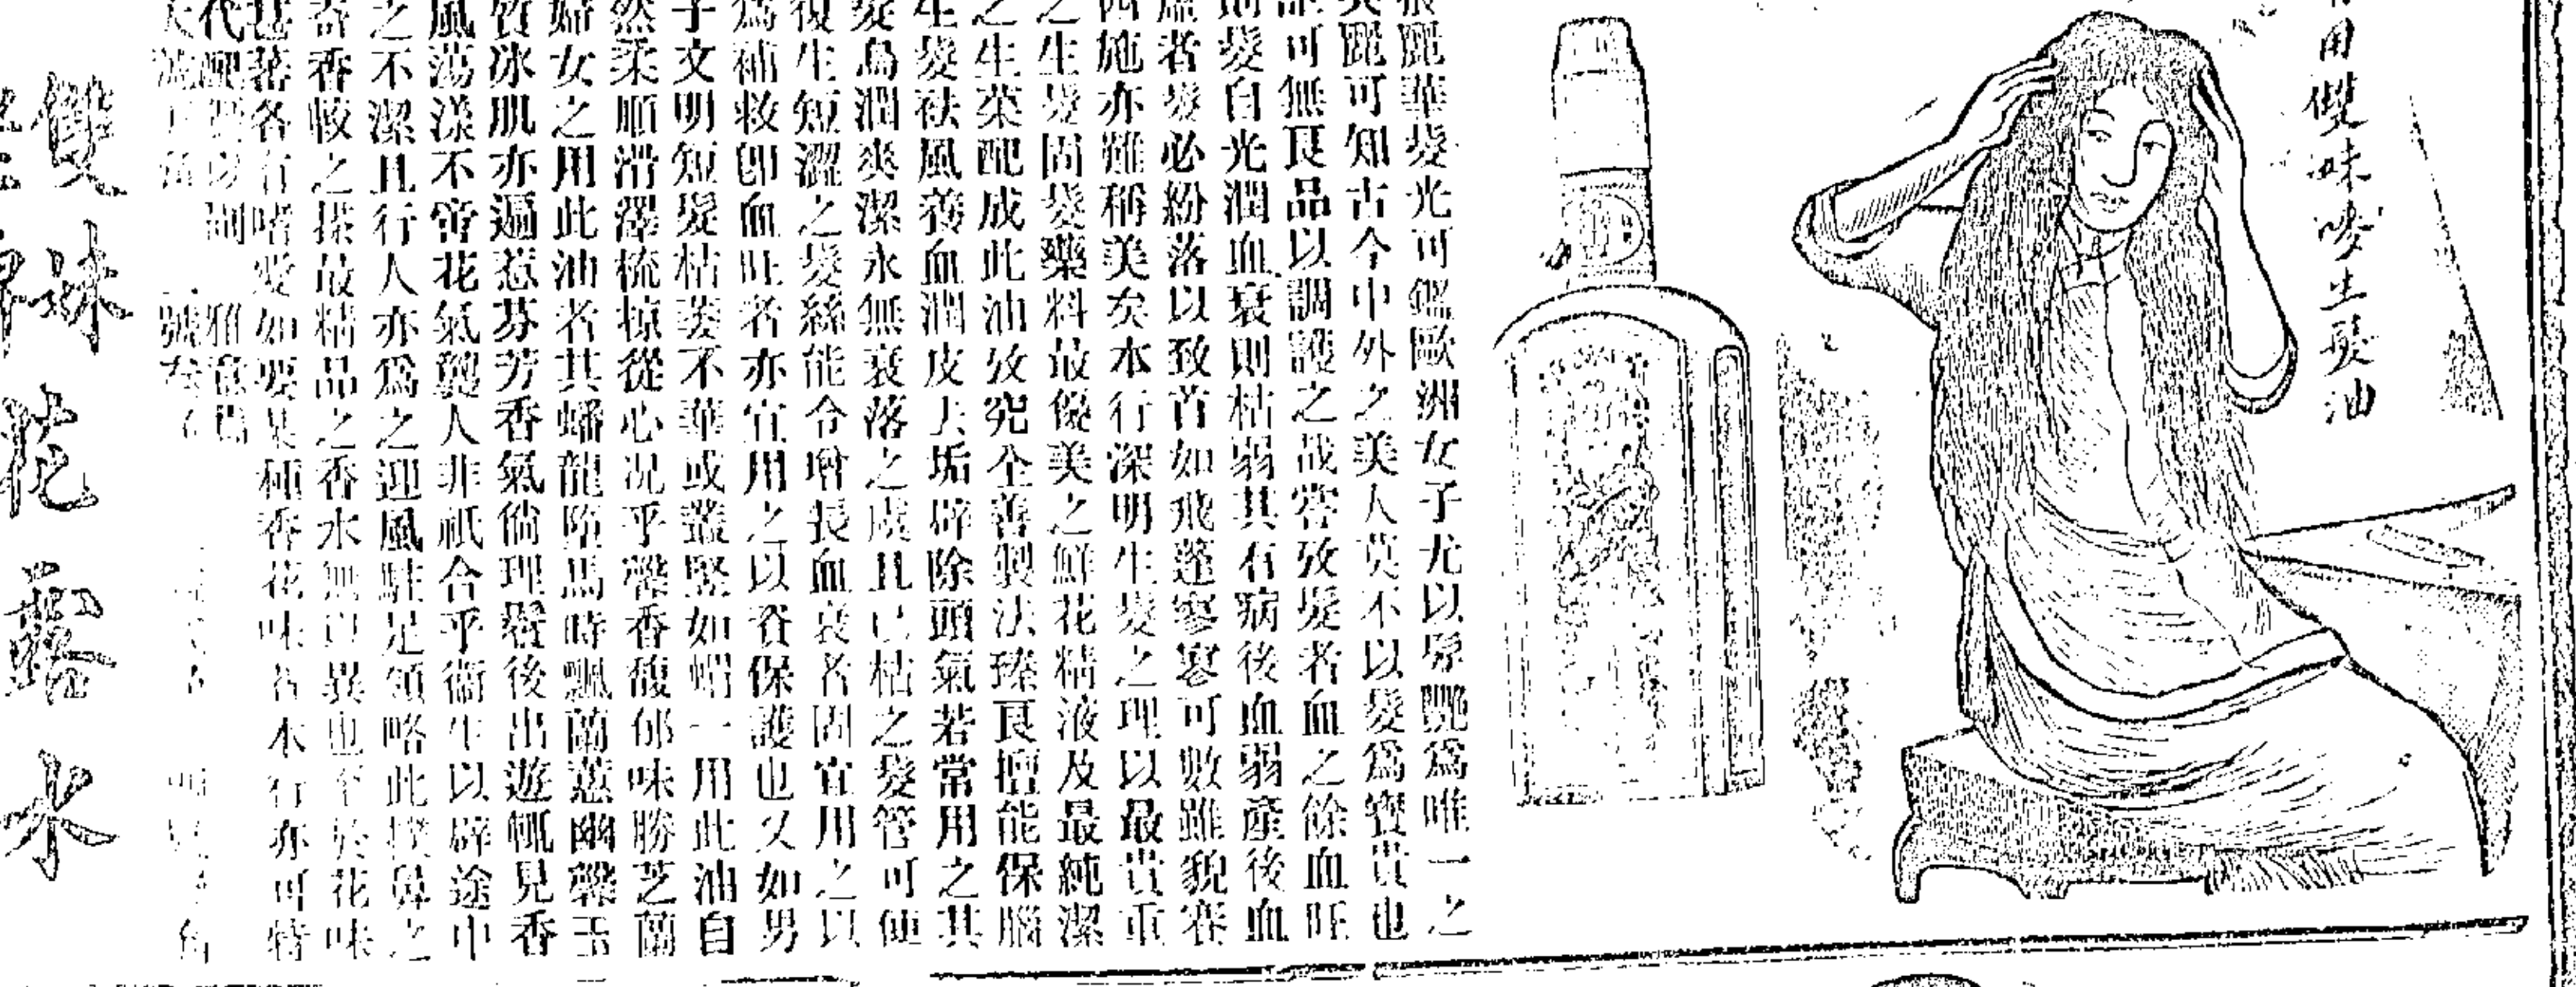 用雙妹嘜生髮油
麗華髮光可鑑歐洲女子尤以髮艷爲唯一之
美麗可知古今中外之美人莫不以髮爲寳貴也
誰可無良品以調護之哉甞攷髮者血之餘血旺
則髮自光潤血衰則枯弱其有病後血弱產後血
虛者髮必紛落以致首如飛蓬寥寥可數雖貌賽
西施亦難稱美矣本行深明生髮之理以最貴重
之生髮固髮藥料最優美之鮮花精液及最純潔
之生菜配成此油攷究全善製法臻良擅能保腦
生髮祛風養血潤皮去垢辟除頭氣若常用之其
髮烏潤爽潔永無衰落之虞且已枯之髮管可使
復生短澀之髮絲能令增長血衰者固宜用之以
爲補救卽血旺者亦宜用之以資保護也又如男
子文明短髮枯萎不華或叢堅如蝟一用此油自
然柔順滑澤梳掠從心况乎馨香馥郁味勝芝蘭
婦女之用此油者其蟠龍墮馬時飄蘭蕙幽馨玉
質冰肌亦遍惹芬芳香氣倘理鬢後出遊輒見香
風蕩漾不啻花氣襲人非祇合乎衞生以辟途中
之不潔且行人亦爲之迎風駐足領略此撲鼻之
奇香較之搽最精品之香水無以異也至於花味
甚蕃各有嗜愛如要某種香花味者本行亦可特
代配製以副 雅意焉
雙妹花露水